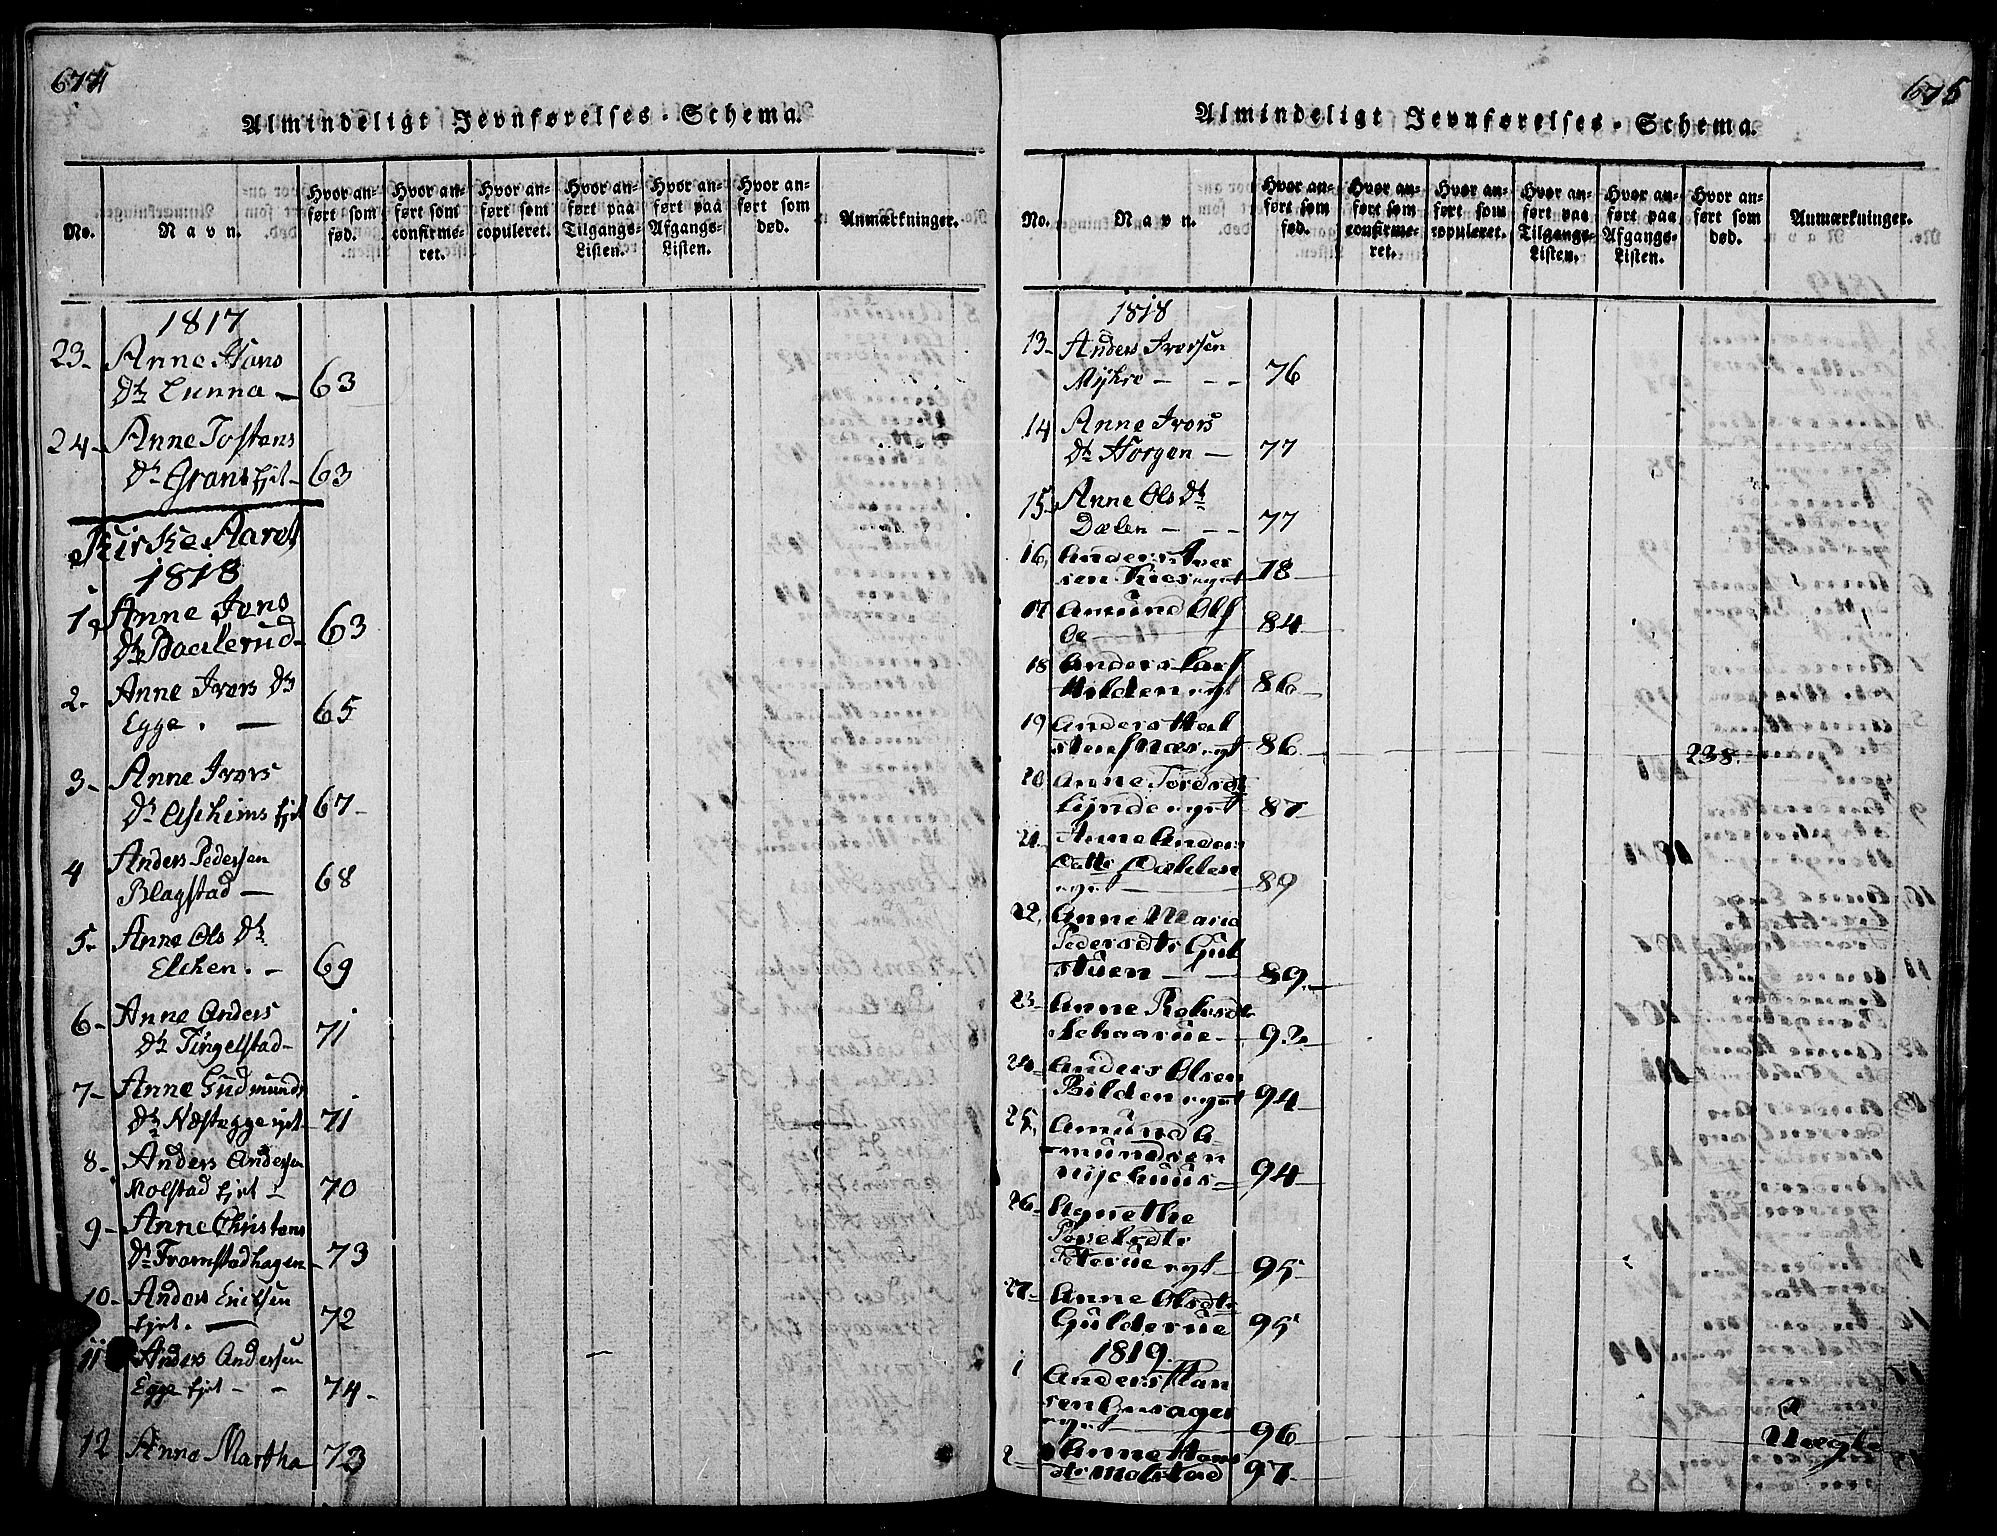 674
Almindeligt Jevnførelses-Schema.
No.
Navn.
Hvor anført som fød.
Hvor anført som confirmeret.
Hvor anført som copuleret.
Hvor anført paa Tilgangs-Listen.
Hvor anført paa Afgangs-Listen.
Hvor anført som død.
Anmærkninger.
1817
23- Anne Hans
Dtr Lunna - 63
24- Anne Tostens
Dtr Grans Ejet- 63
Kirke Aaret
1818
1, Anne Jons
Dtr Baalerud- 63
2- Anne Ivers Dtr
Egge. - 65
3- Anne Ivers
Dtr Aschims Ejet 67-
4 Anders Pedersen
Blagstad - 68
5- Anne Ols Dtr
Elchen. - 69
6- Anne Anders
Dtr Tingelstad- 71
7- Anne Gudmunds
Dtr Næsteggeejet- 71
8- Anders Andersen
Molstad Ejet - 70
9- Anne Christens
Dtr Framstadhagen- 73
10- Anders Ericksen
Ejet. - 72
11 Anders Andersen
Egge Ejet - - 74-
12 Anne Martha 73
675
Almindeligt Jevnførelses-Schema.
No.
Navn.
Hvor anført som fød.
Hvor anført som confirmeret.
Hvor anført som copuleret.
Hvor anført paa Tilgangs-Listen.
Hvor anført paa Afgangs-Listen.
Hvor anført som død.
Anmærkninger.
1818
13- Anders Iversen
Myhre - - - 76
14 Anne Ivers
Dtr Horgen - 77
15- Anne Ols Dtr
Dælen - - - 77
16, Anders Iver
sen 78-
17 Amund Ols
84-
18 Anders Lars
Hilden eyt 86-
19 Anders Hal
sten eyt 86. 238.
20 Anne Tordsdtr
Lynne eyet 87-
21 Anne Anders
Datter Dæhlen
eyet 89
22, Anne Maria
Pedersdtr Gul
stuen - - 89.-
23- Anne
93.-
24- Anders Olsen
Bilden eyet 94-
25, Amund A-
mundsen
Nysehuus- 94-
26- Agnethe
Povelsdtr
eyt- 95-
27- Anne Olsdtr
Gulderue 95
1819
1 Anders Han
sen
eyet 96-
2- Anne Hans
dtr Molstad 97-
Uægte